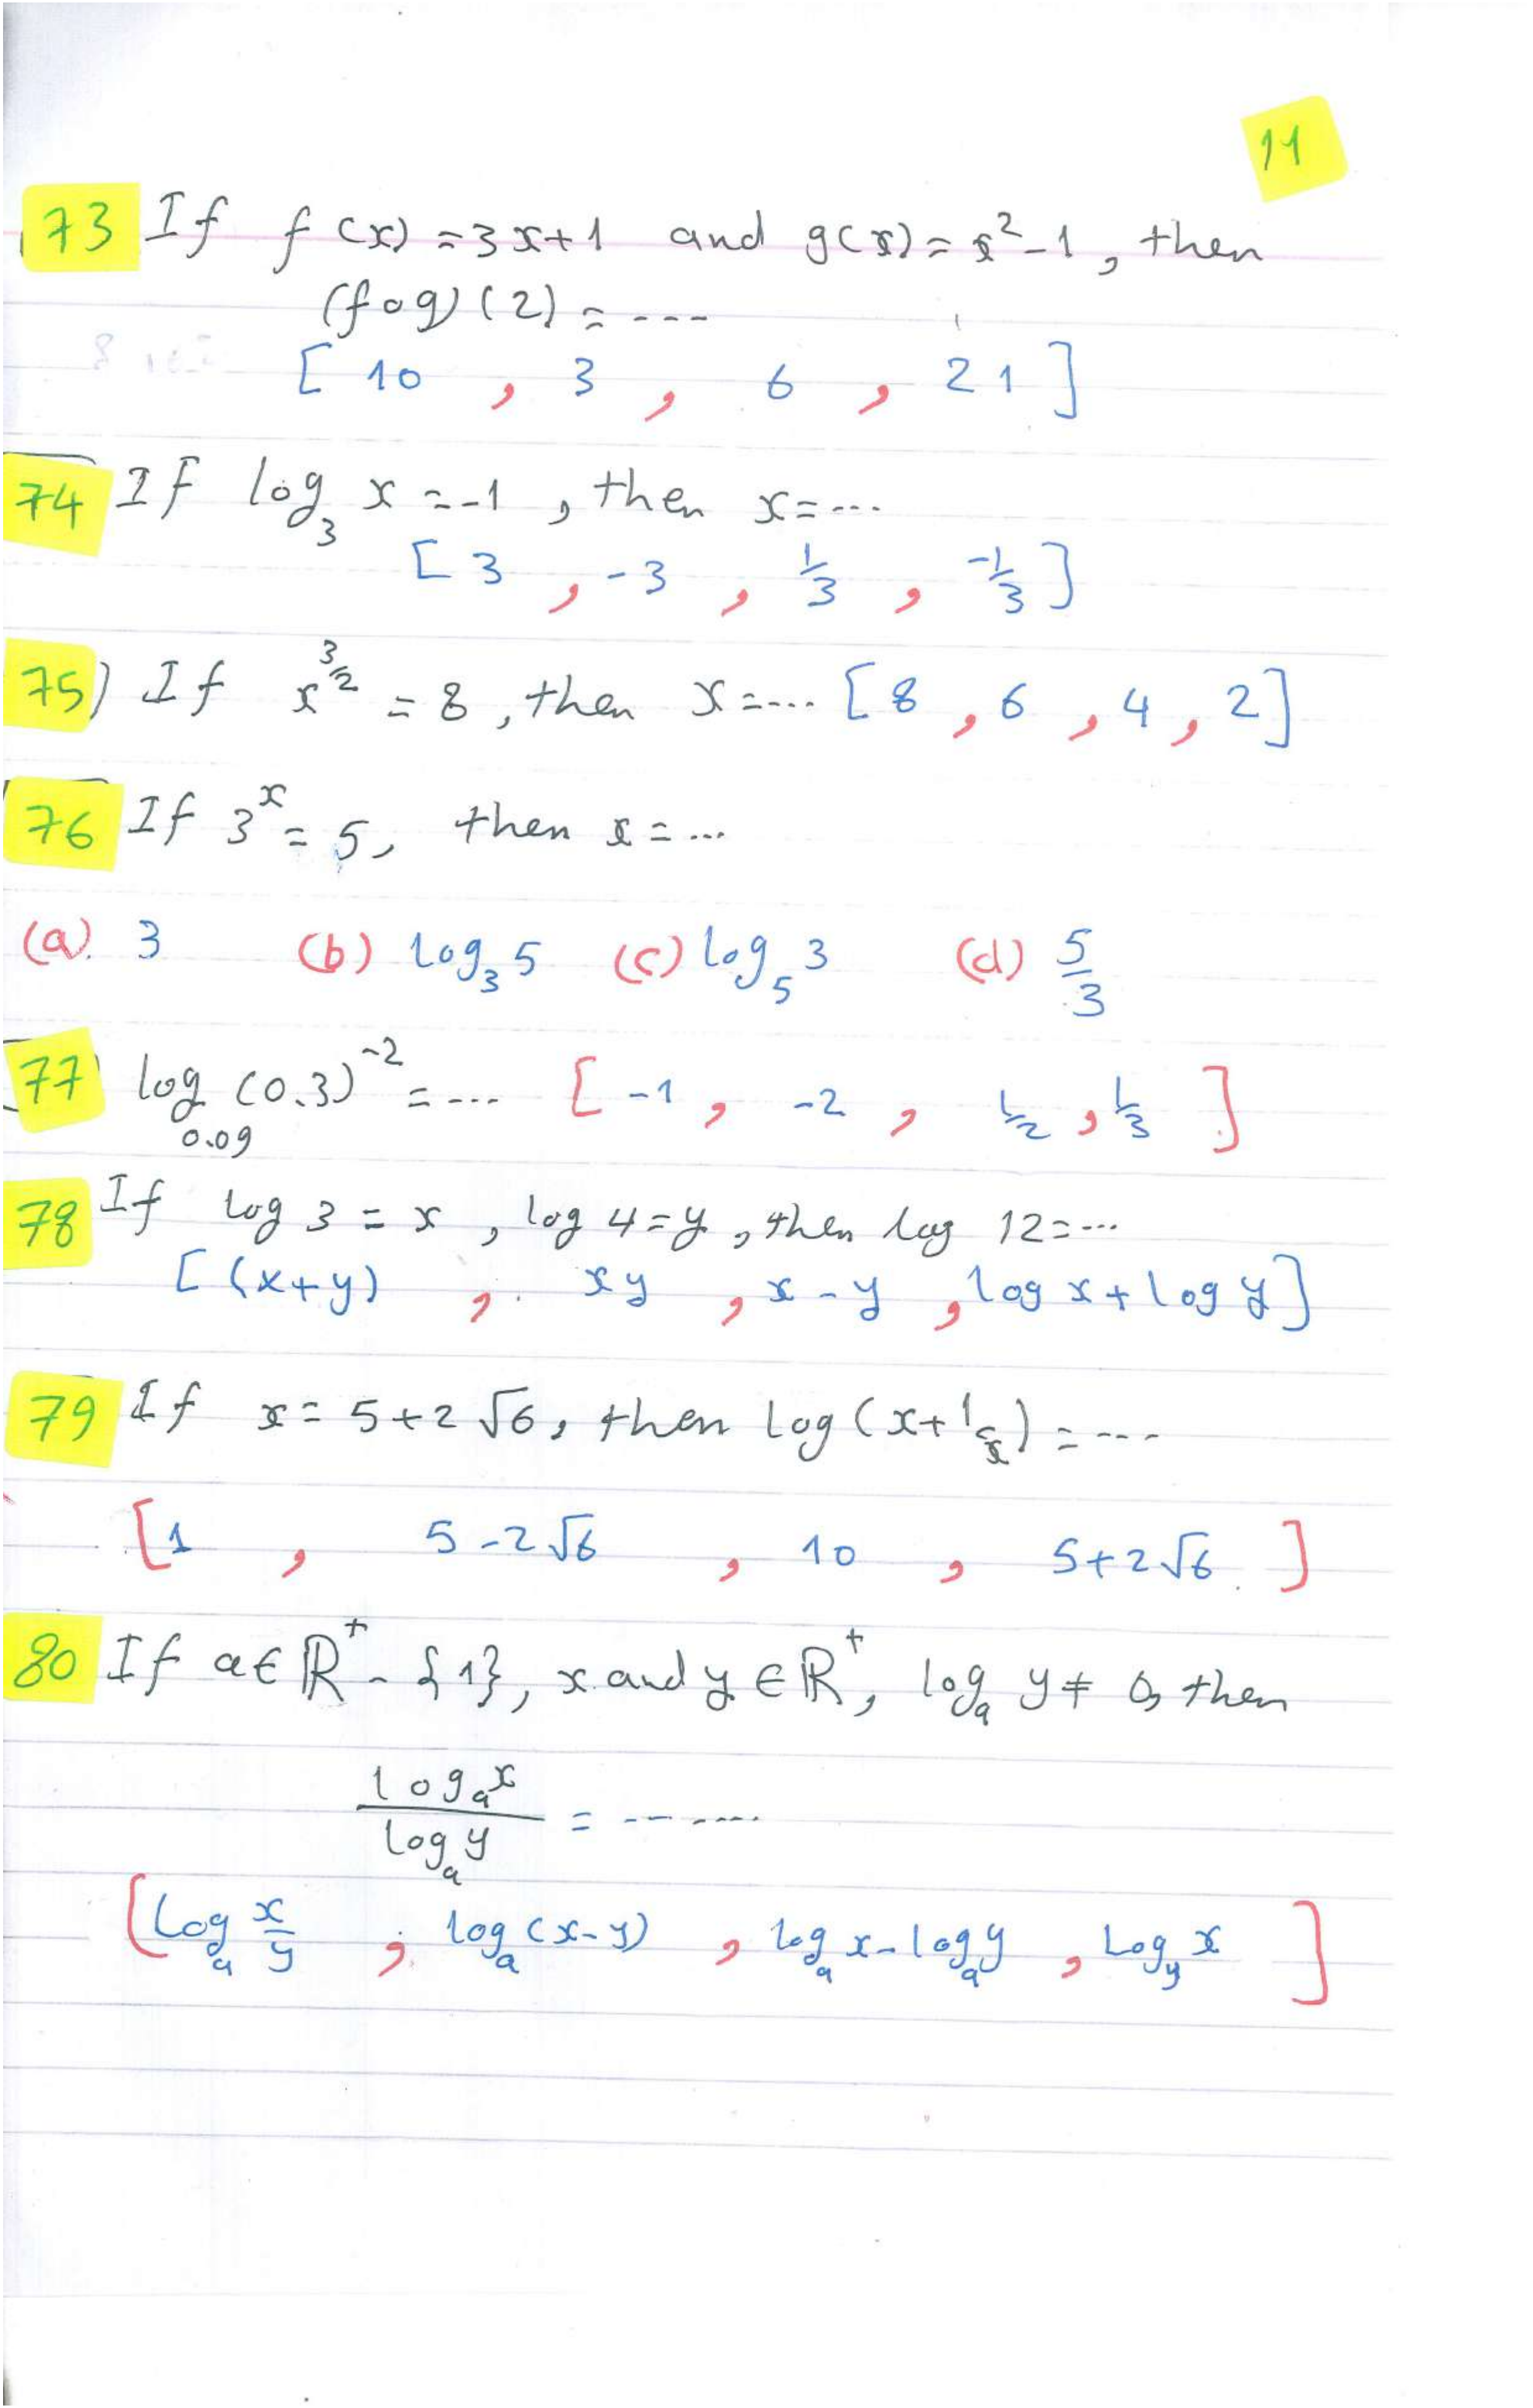 11
73 If f(x) = 3x+1 and g(x) = x²-1, then
(fog)(2) = ---
[ 10 , 3 , 6 , 21 ]
74 If log₃ x = -1 , then x = ...
[ 3 , -3 , 1/3 , -1/3 ]
75) If x^(3/2) = 8 , then x = ... [ 8 , 6 , 4 , 2 ]
76 If 3^x = 5, then x = ...
(a) 3 (b) log₃ 5 (c) log₅ 3 (d) 5/3
77 log_0.09 (0.3)^-2 = ... [ -1 , -2 , 1/2 , 1/3 ]
78 If log 3 = x , log 4 = y , then log 12 = ...
[ (x+y) , xy , x-y , log x + log y ]
79 If x = 5+2√6, then log (x+1/x) = ---
[ 1 , 5-2√6 , 10 , 5+2√6 ]
80 If a∈ℝ⁺-{1}, x and y ∈ℝ⁺, log_a y ≠ 0, then
log_a x / log_a y = -------
[ log_a x/y , log_a (x-y) , log_a x - log_a y , log_y x ]